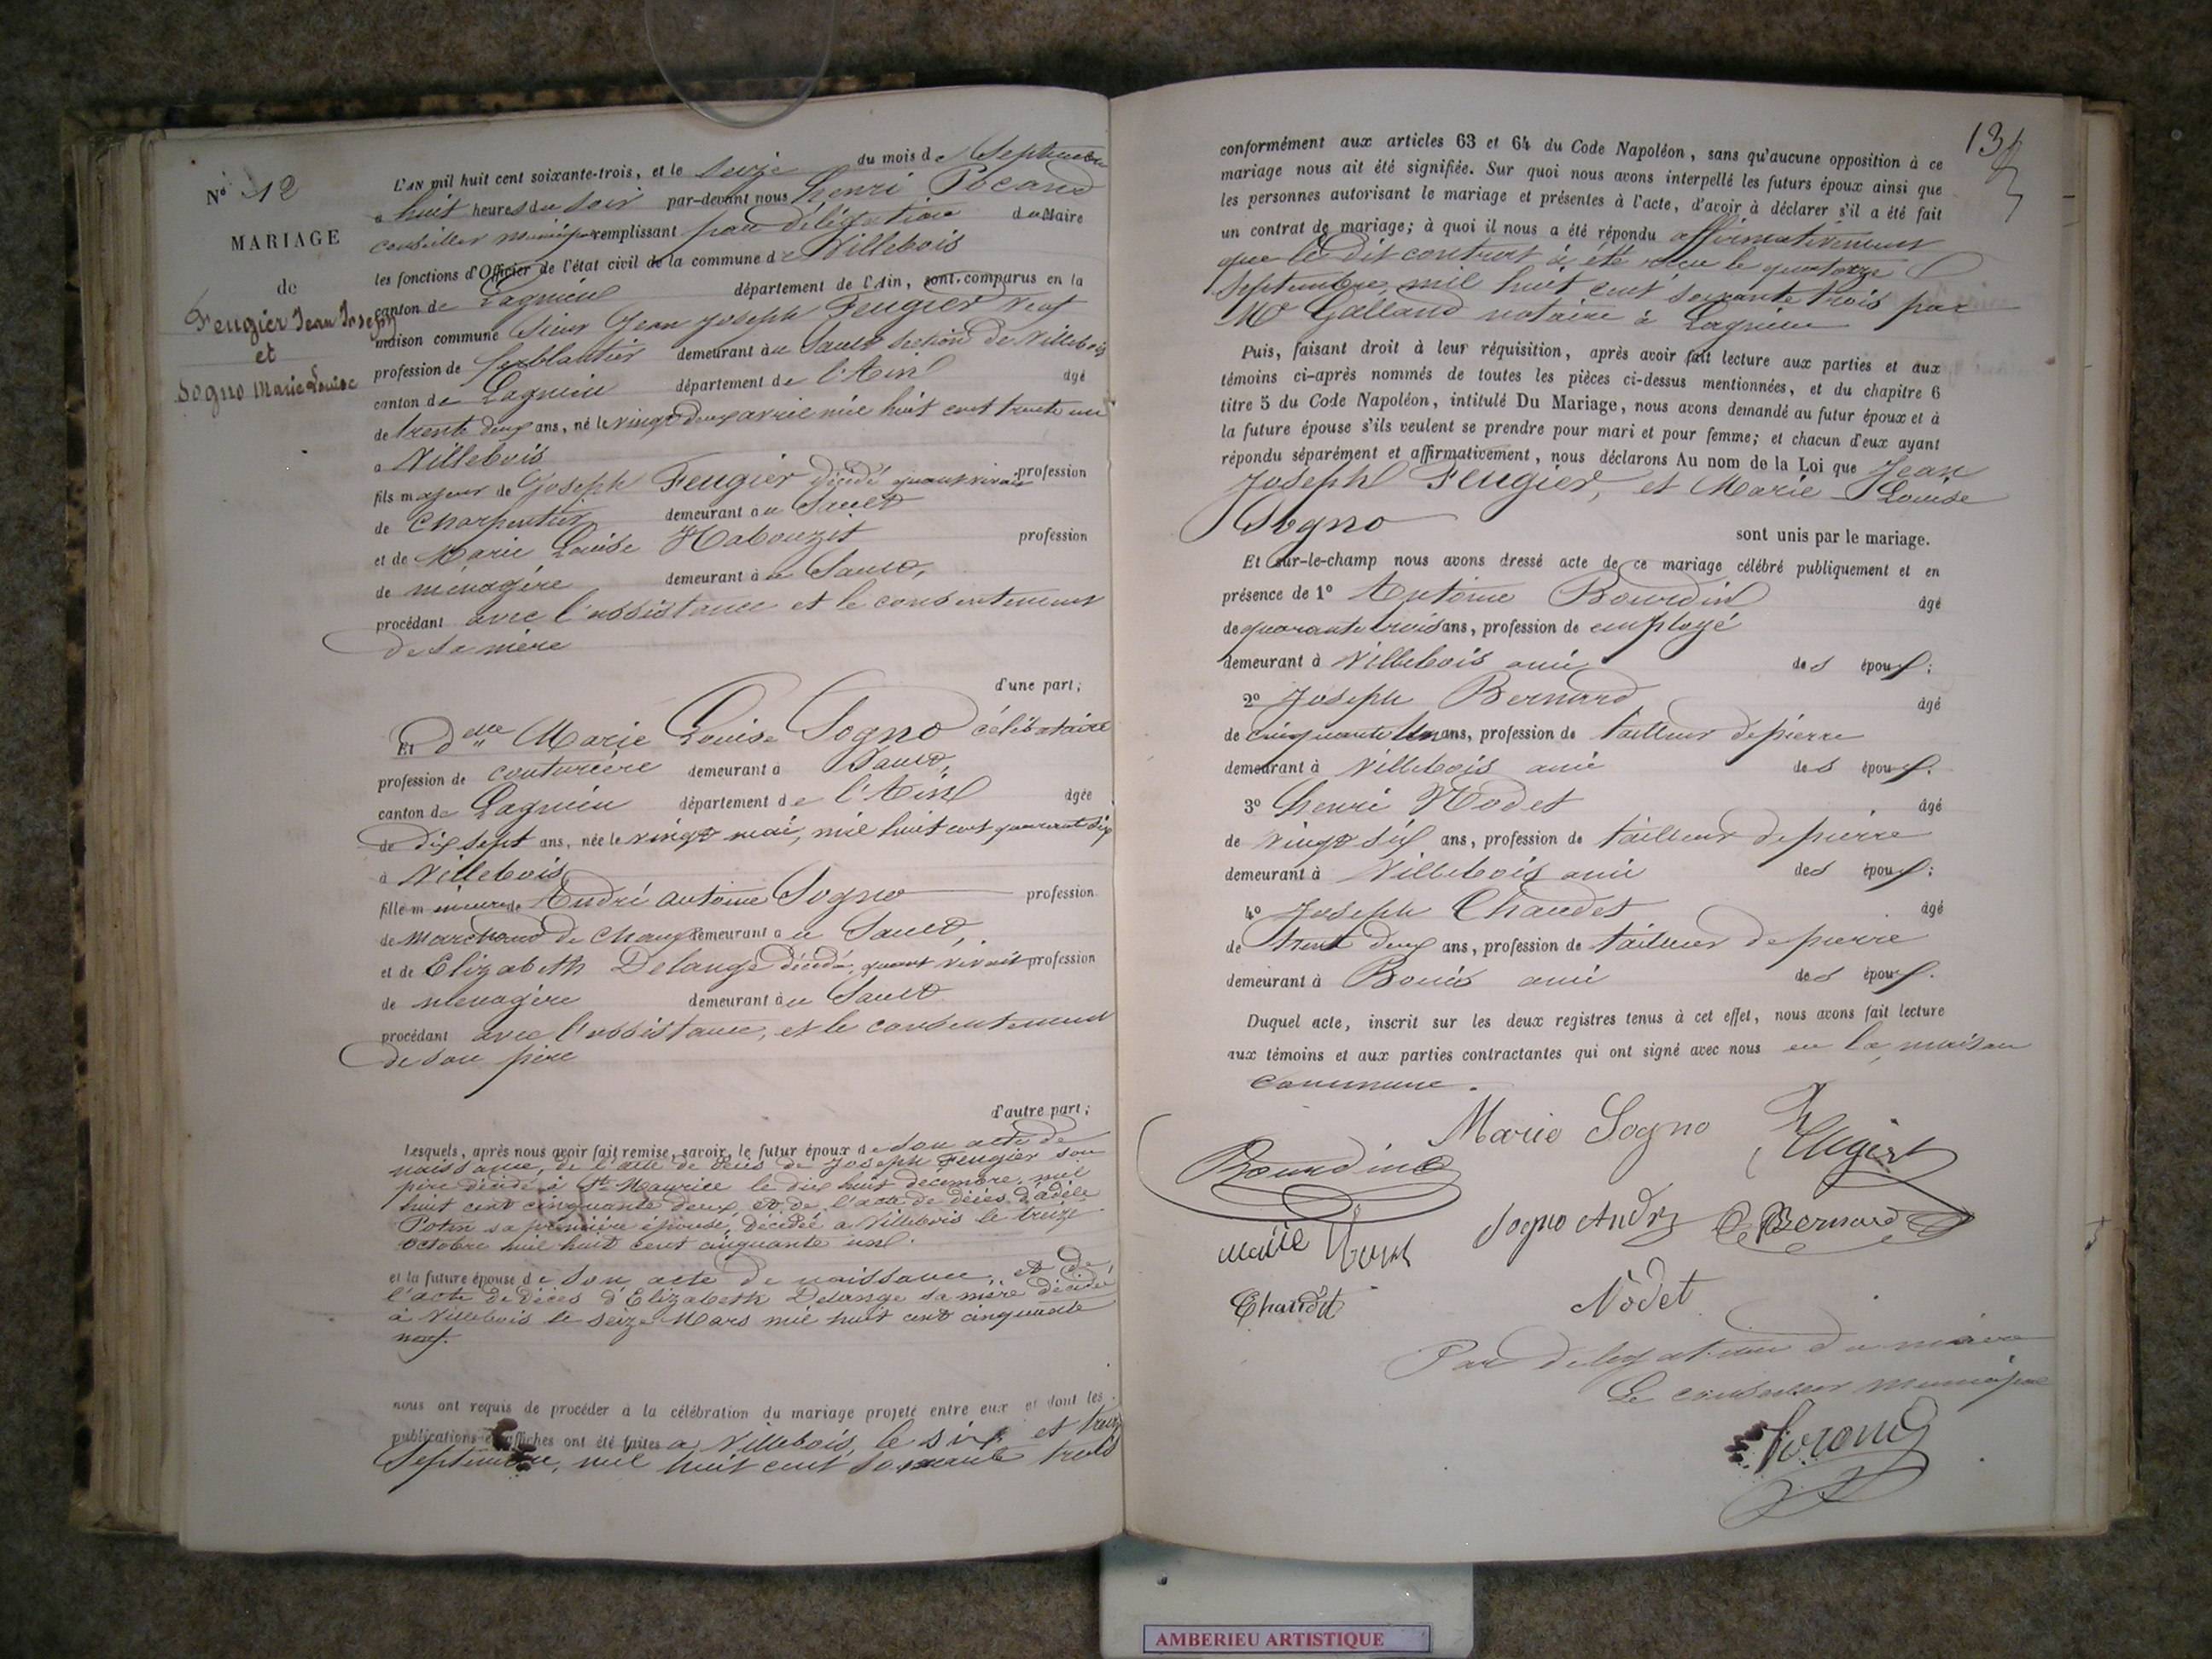 N° 12
MARIAGE
de
Feugier Jean Joseph
et
Sogno Marie Louise
L'AN mil huit cent soixante-trois, et le seize du mois de Septembre
a huit heures du soir par-devant nous henri Pocand
conseiller municipal remplissant par délégation du Maire
les fonctions d'Officier de l'état civil de la commune de Villebois
canton de Lagnieu département de l'Ain, sont comparus en la
maison commune Sieur Jean Joseph Feugier veuf
profession de ferblantier demeurant au Sault section de Villebois
canton de Lagnieu département de l'Ain âgé
de trente deux ans, né le vingt deux avril mil huit cent trente un
a Villebois
fils majeur de Joseph Feugier décédé quand vivait profession
de Charpentier demeurant au Sault
et de Marie Louise Rabouzit profession
de ménagère demeurant à u Sault,
procédant avec l'assistance et le consentement
de sa mère
d'une part;
Et delle Marie Louise Sogno célibataire
profession de couturière demeurant à Sault,
canton de Lagnieu département de l'Ain âgée
de dix sept ans, née le vingt mai, mil huit cent quarante six
à Villebois
fille mineure de André Antoine Sogno profession
de Marchand de chaux demeurant a u Sault,
et de Elizabeth Delange décédée, quant vivait profession
de ménagère demeurant à u Sault
procédant avec l'assistance, et le consentement
de son père
d'autre part;
Lesquels, après nous avoir fait remise, savoir, le futur époux de son acte de
naissance, de l'acte de décès de Joseph Feugier son
père décédé à St Maurice le dix huit décembre, mil
huit cent cinquante deux, et de l'acte de décès d'adèle
Potin sa première épouse, décédée a Villebois le treize
octobre mil huit cent cinquante un.
et la future épouse de son acte de naissance, et de
l'acte de décès d'Elizabeth Delange sa mère décédée
à Villebois le seize Mars mil huit cent cinquante
neuf.
nous ont requis de procéder à la célébration du mariage projeté entre eux et dont les
publications et affiches ont été faites a Villebois, le six et treize
Septembre, mil huit cent soixante trois
conformément aux articles 63 et 64 du Code Napoléon, sans qu'aucune opposition à ce
mariage nous ait été signifiée. Sur quoi nous avons interpellé les futurs époux ainsi que
les personnes autorisant le mariage et présentes à l'acte, d'avoir à déclarer s'il a été fait
un contrat de mariage; à quoi il nous a été répondu affirmativement
que le dit contrat à été reçu le quatorze
Septembre, mil huit cent soixante trois par
Me Galland notaire à Lagnieu
Puis, faisant droit à leur réquisition, après avoir fait lecture aux parties et aux
témoins ci-après nommés de toutes les pièces ci-dessus mentionnées, et du chapitre 6
titre 5 du Code Napoléon, intitulé Du Mariage, nous avons demandé au futur époux et à
la future épouse s'ils veulent se prendre pour mari et pour femme; et chacun d'eux ayant
répondu séparément et affirmativement, nous déclarons Au nom de la Loi que Jean
Joseph Feugier, et Marie Louise
Sogno
sont unis par le mariage.
Et sur-le-champ nous avons dressé acte de ce mariage célébré publiquement et en
présence de 1° Antoine Bourdin âgé
de quarante trois ans, profession de employé
demeurant à Villebois ami des époux;
2° Joseph Bernard âgé
de cinquante Un ans, profession de tailleur de pierre
demeurant à Villebois ami des époux.
3° henri Nodet âgé
de vingt six ans, profession de tailleur de pierre
demeurant à Villebois ami des époux;
4° Joseph Chaudet âgé
de trent deux ans, profession de tailleur de pierre
demeurant à Bouis ami des époux.
Duquel acte, inscrit sur les deux registres tenus à cet effet, nous avons fait lecture
aux témoins et aux parties contractantes qui ont signé avec nous en la maison
commune.
Marie Sogno Feugier
Bourdin
Sogno André Bernard
Chaudet Nodet
Par délégation du maire
Le conseiller municipal
AMBERIEU ARTISTIQUE